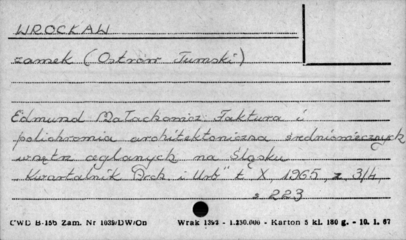 WROCŁAW
zamek (Ostrów Tumski)
Edmund Małachowicz: Faktura i
polichromia architektoniczna średniowiecznych
wnętrz ceglanych na Śląsku
"Kwartalnik Arch. i Urb" t. X, 1965, z. 3/4,
s. 223
CWD B-15b Zam. Nr 1639/DW/Ob Wrak 1392 - 1.250.000 - Karton 5 kl. 180 g. - 10. 1. 67